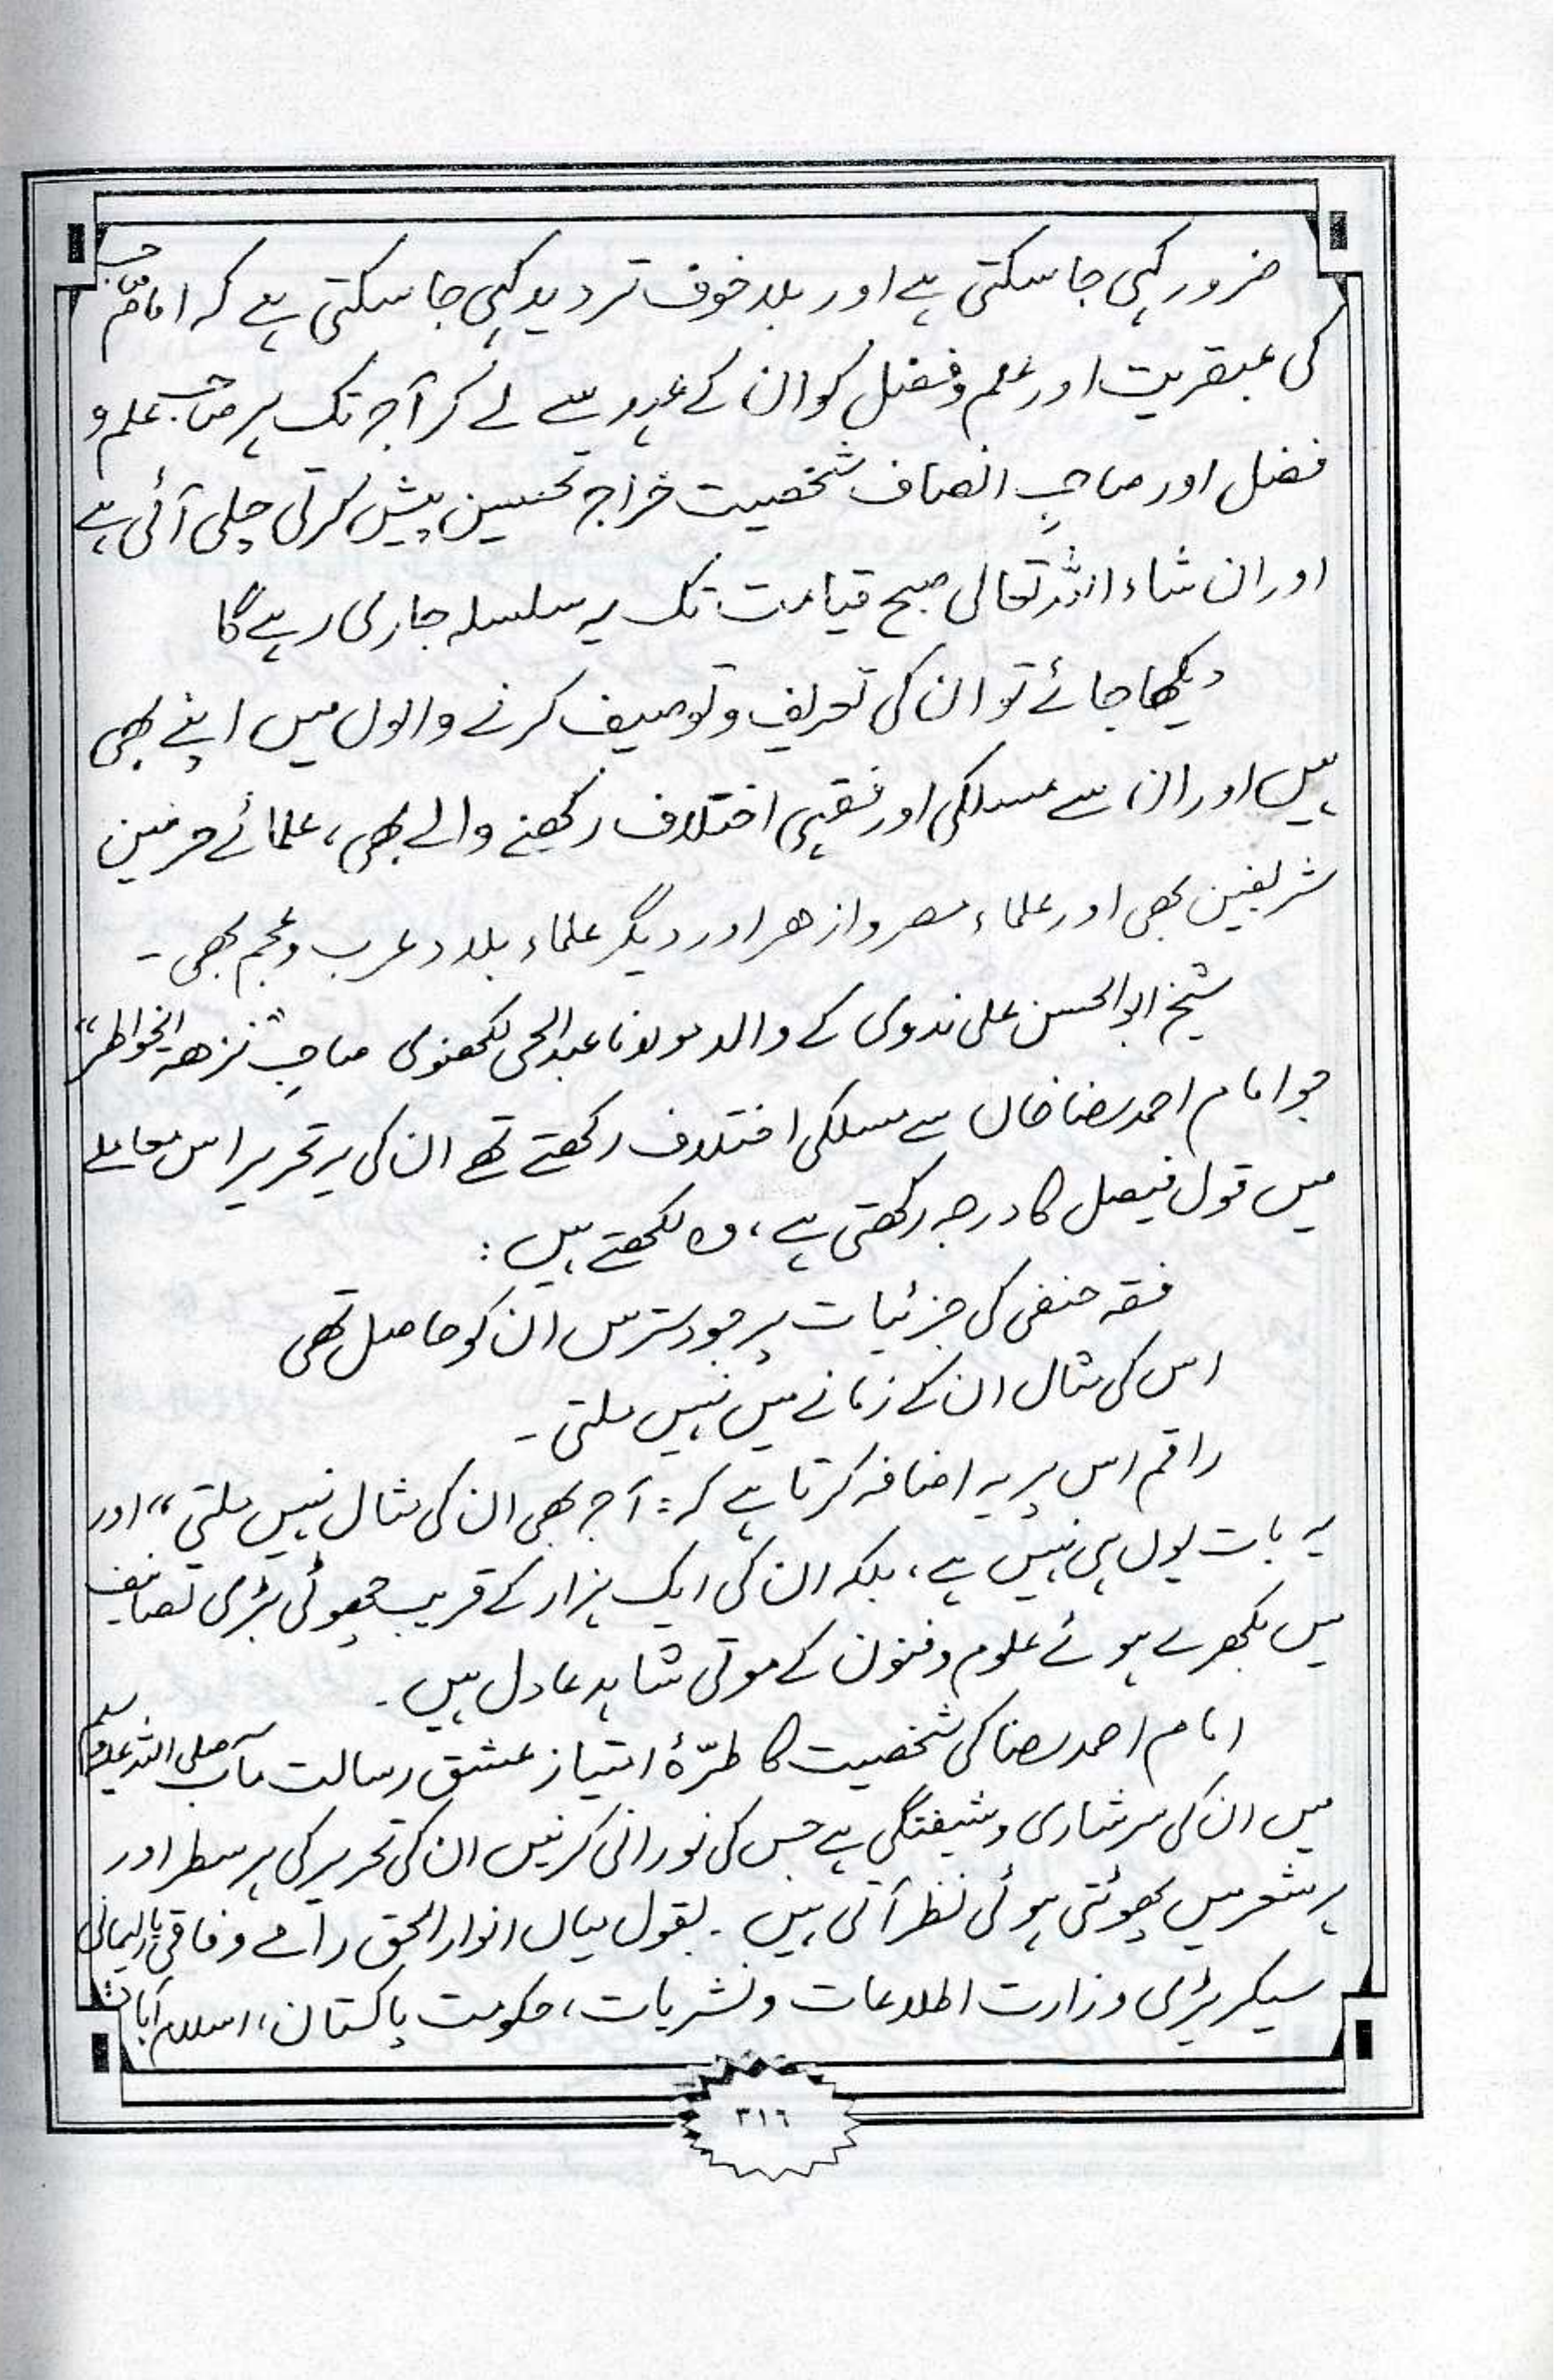 ضرور کہی جا سکتی ہے اور بلا خوف تردید کہی جا سکتی ہے کہ امام صاحب
کی عبقریت اور علم و فضل کو ان کے عہد سے لے کر آج تک ہر صاحب علم و
فضل اور صاحبِ انصاف شخصیت خراج تحسین پیش کرتی چلی آئی ہے
اور ان شاء اللہ تعالیٰ صبح قیامت تک یہ سلسلہ جاری رہے گا
دیکھا جائے تو ان کی تعریف و توصیف کرنے والوں میں اپنے بھی
ہیں اور ان سے مسلکی اور فقہی اختلاف رکھنے والے بھی، علمائے حرمین
شریفین بھی اور علماء مصر و ازھر اور دیگر علماء بلاد عرب و عجم بھی۔
شیخ ابوالحسن علی ندوی کے والد مولانا عبدالحی لکھنوی صاحبِ "نزھۃ الخواطر"
جو امام احمد رضا خاں سے مسلکی اختلاف رکھتے تھے ان کی یہ تحریر اس معاملے
میں قول فیصل کا درجہ رکھتی ہے، وہ لکھتے ہیں:
فقہ حنفی کی جزئیات پر جو دسترس ان کو حاصل تھی
اس کی مثال ان کے زمانے میں نہیں ملتی۔
راقم اس پر یہ اضافہ کرتا ہے کہ: آج بھی ان کی مثال نہیں ملتی" اور
یہ بات یوں ہی نہیں ہے، بلکہ ان کی ایک ہزار کے قریب چھوٹی بڑی تصانیف
میں بکھرے ہوئے علوم و فنون کے موتی شاہد عادل ہیں۔
امام احمد رضا کی شخصیت کا طرّۂ امتیاز عشق رسالت مآب صلی اللہ علیہ وسلم
میں ان کی سرشاری و شیفتگی ہے جس کی نورانی کرنیں ان کی تحریر کی ہر سطر اور
ہر شعر میں پھوٹتی ہوئی نظر آتی ہیں۔ بقول میاں انوار الحق رامے وفاقی پارلیمانی
سیکریٹری وزارت اطلاعات و نشریات، حکومت پاکستان، اسلام آباد
۳۱٦